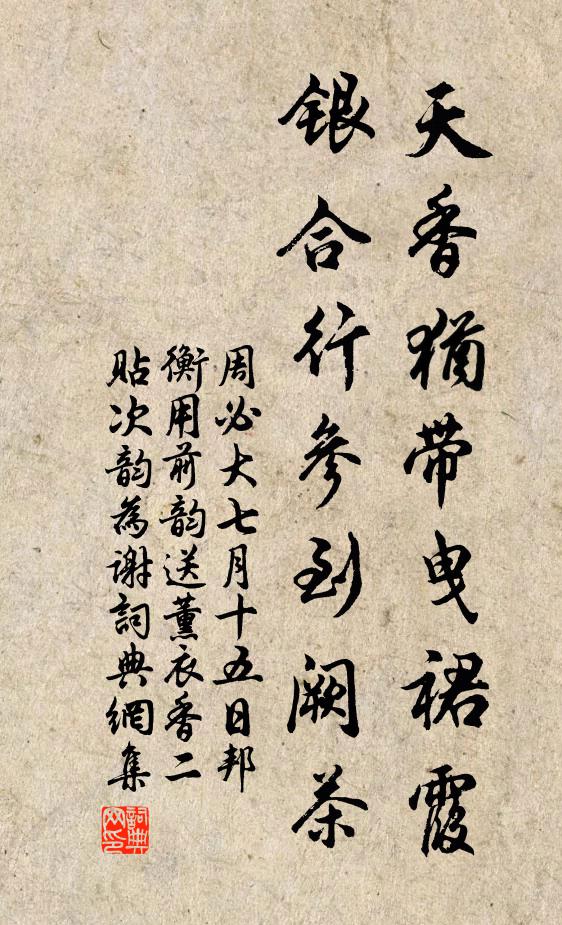 天香猶带曳裙霞
銀合行參到阙茶
周必大七月十五日邦
衡用前韵送薰衣香二
貼次韵為谢詞典網集
詞典
网印